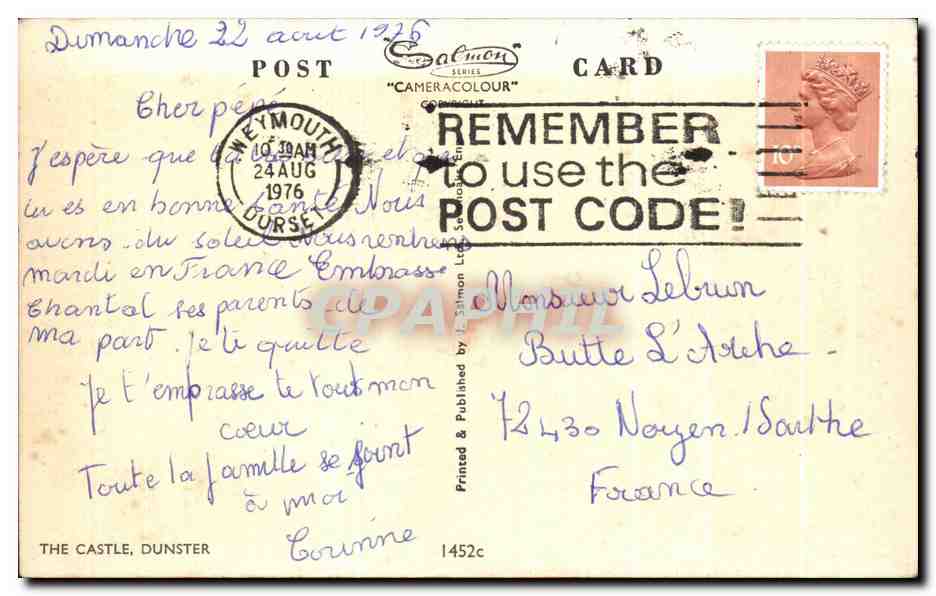 Dimanche 22 aout 1976
POST CARD
Salmon
SERIES
"CAMERACOLOUR"
COPYRIGHT
Cher pépé
J'espère que tu vas et que
tu es en bonne santé Nous
avons du soleil nous rentrons
mardi en France Embrasse
Chantal ses parents de
ma part. Je te quitte
Je t'emprasse te tout mon
coeur
Toute la famille se joint
à moi
Corinne
WEYMOUTH
10 30AM
24 AUG
1976
DORSET
REMEMBER
to use the
POST CODE!
10P
Monsieur Lebrun
Butte L'Arche
72430 Noyen /Sarthe
France
Printed & Published by J. Salmon Ltd., Sevenoaks, En
CPAPHIL
THE CASTLE, DUNSTER
1452c